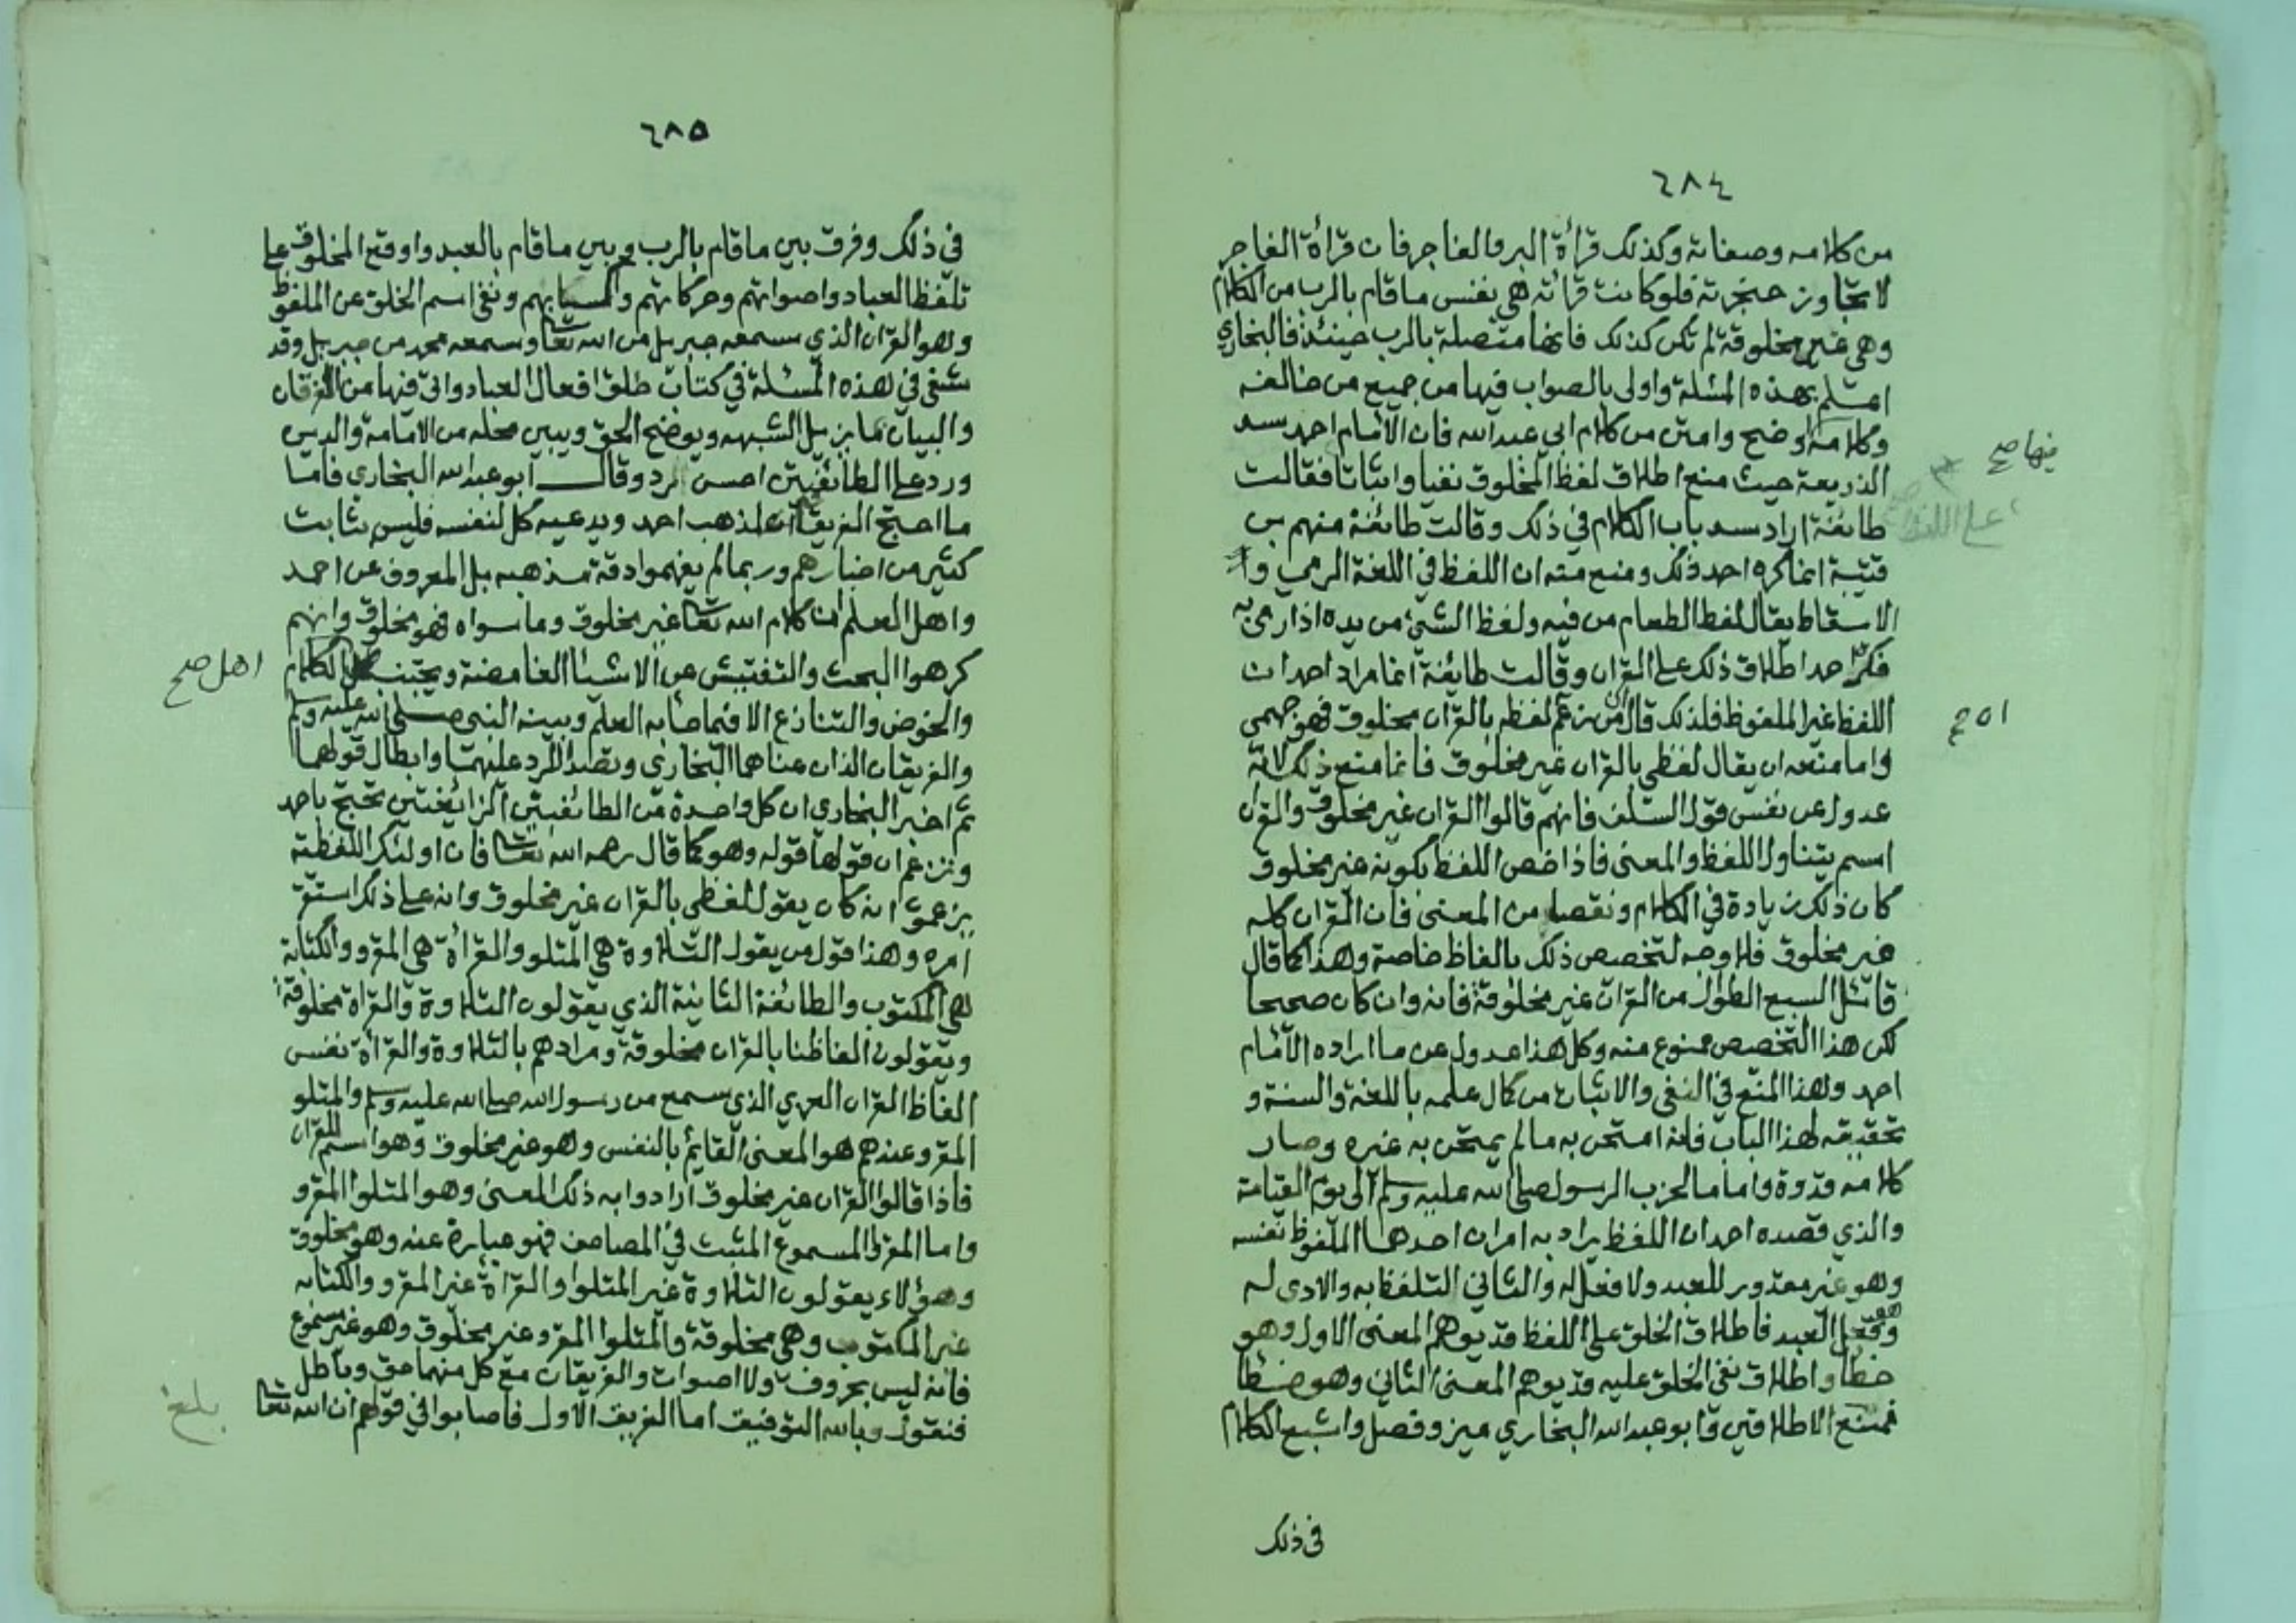 ٦٨٤
من كلامه وصفاته وكذلك قرأة البر والفاجر فان قرأة الفاجر
لا تجاوز حنجرته فلو كانت قرائه هي نفس ما قام بالرب من الكلام
وهي غير مخلوقة لم تكن كذلك فانها متصلة بالرب حينئذ فالبخاري
اعلم بهذه المسئلة واولى بالصواب فيها من جميع من خالفه
وكلامه اوضح وامتن من كلام ابي عبدالله فان الامام احمد سد
فيها صح
الذريعة حيث منع اطلاق لفظ المخلوق نفيا واثباتا فقالت
على اللفظ
طائفة اراد سد باب الكلام في ذلك وقالت طائفة منهم بن
قتيبة انما كره احمد ذلك ومنع منه ان اللفظ في اللغة الرمي و
الاسقاط يقال لفظ الطعام من فيه ولفظ الشئ من يده اذا رمى به
فكره احمد اطلاق ذلك على القران وقالت طايفة انما مراد احمد ان
اللفظ غير الملفوظ فلذلك قال ان من زعم لفظه بالقران مخلوق فهو جهمي
واما منعه ان يقال لفظي بالقران غير مخلوق فانما منع ذلك لانه
عدول عن نفس قول السلف فانهم قالوا القران غير مخلوق والقران
اسم يتناول اللفظ والمعنى فاذا خص اللفظ بكونه غير مخلوق
كان ذلك زيادة في الكلام ونقصا من المعنى فان القران كله
غير مخلوق فلا وجه لتخصيص ذلك بالفاظ خاصة وهذا كما قال
قائل السبع الطوال من القران غير مخلوقة فانه وان كان صحيحا
لكن هذا التخصيص ممنوع منه وكل هذا عدول عن ما اراده الامام
احمد وهذا المنع في النفي والاثبات من كمال علمه باللغة والسنة و
تحقيقه لهذا الباب فانه امتحن به ما لم يمتحن به غيره وصار
كلامه قدوة واماما لحزب الرسول صلى الله عليه وسلم الى يوم القيامة
والذي قصده احمد ان اللفظ يراد به امران احدهما الملفوظ نفسه
وهو غير مقدور للعبد ولا فعل له والثاني التلفظ به والادى له
وهو فعل العبد فاطلاق الخلق على اللفظ قد يوهم المعنى الاول وهو
خطأ واطلاق نفي الخلق عليه قد يوهم المعنى الثاني وهو خطأ
فمنع الاطلاقين وابو عبدالله البخاري ميز وفصل واشبع الكلام
في ذلك
٦٨٥
في ذلك وفرق بين ما قام بالرب وبين ما قام بالعبد واوقع المخلوق على
تلفظ العباد واصواتهم وحركاتهم واكسابهم ونفى اسم الخلق عن الملفوظ
وهو القران الذي سمعه جبريل من الله تعالى وسمعه محمد من جبريل وقد
شفى في هذه المسئلة في كتاب خلق افعال العباد واتى فيها من الفرقان
والبيان ما يزيل الشبهه ويوضح الحق ويبين محله من الامامة والدين
ورد على الطائفتين احسن الرد وقال ابو عبدالله البخاري فاما
ما احتج الفريقان لمذهب احمد ويدعيه كل لنفسه فليس بثابت
كثير من اخبارهم وربما لم يفهموا دقة مذهبه بل المعروف عن احمد
واهل العلم ان كلام الله تعالى غير مخلوق وما سواه فهو مخلوق وانهم
كرهوا البحث والتفتيش عن الاشيا الغامضة وتجنب اهل الكلام
اهل صح
والخوض والتنازع الا فيما جا به العلم وبينه النبي صلى الله عليه وسلم
والفريقان الذان عناهما البخاري وتصدا للرد عليهما وابطال قولهما
ثم اخبر البخاري ان كل واحدة من الطائفتين الزائغتين تحتج باحمد
وتزعم ان قولها قوله وهو كما قال رحمه الله تعالى فان اولئك اللفظية
يزعمون انه كان يقول لفظي بالقران غير مخلوق وانه على ذلك استقر
امره وهذا قول من يقول التلاوة هي المتلو والقرأة هي المقرو والكتابة
هي المكتوب والطائفة الثانية الذي يقولون التلاوة والقراة مخلوقة
ويقولون الفاظنا بالقران مخلوقة ومرادهم بالتلاوة والقرأة نفس
الفاظ القران العربي الذي سمع من رسول الله صلى الله عليه وسلم والمتلو
المقرو عندهم هو المعنى القائم بالنفس وهو غير مخلوق وهو اسم للقران
فاذا قالوا القران غير مخلوق ارادوا به ذلك المعنى وهو المتلوا المقرو
واما المقرؤ المسموع المثبت في المصاحف فهو عبارة عنه وهو مخلوق
وهؤلاء يقولون التلاوة غير المتلوا والقرأة غير المقرو والكتابه
غير المكتوب وهي مخلوقة والمتلوا المقرو غير مخلوق وهو غير مسموع
فانه ليس بحروف ولا اصوات والفريقان مع كل منهما حق وباطل
فنقول وبالله التوفيق اما الفريق الاول فاصابوا في قولهم ان الله تعالى
بلغ